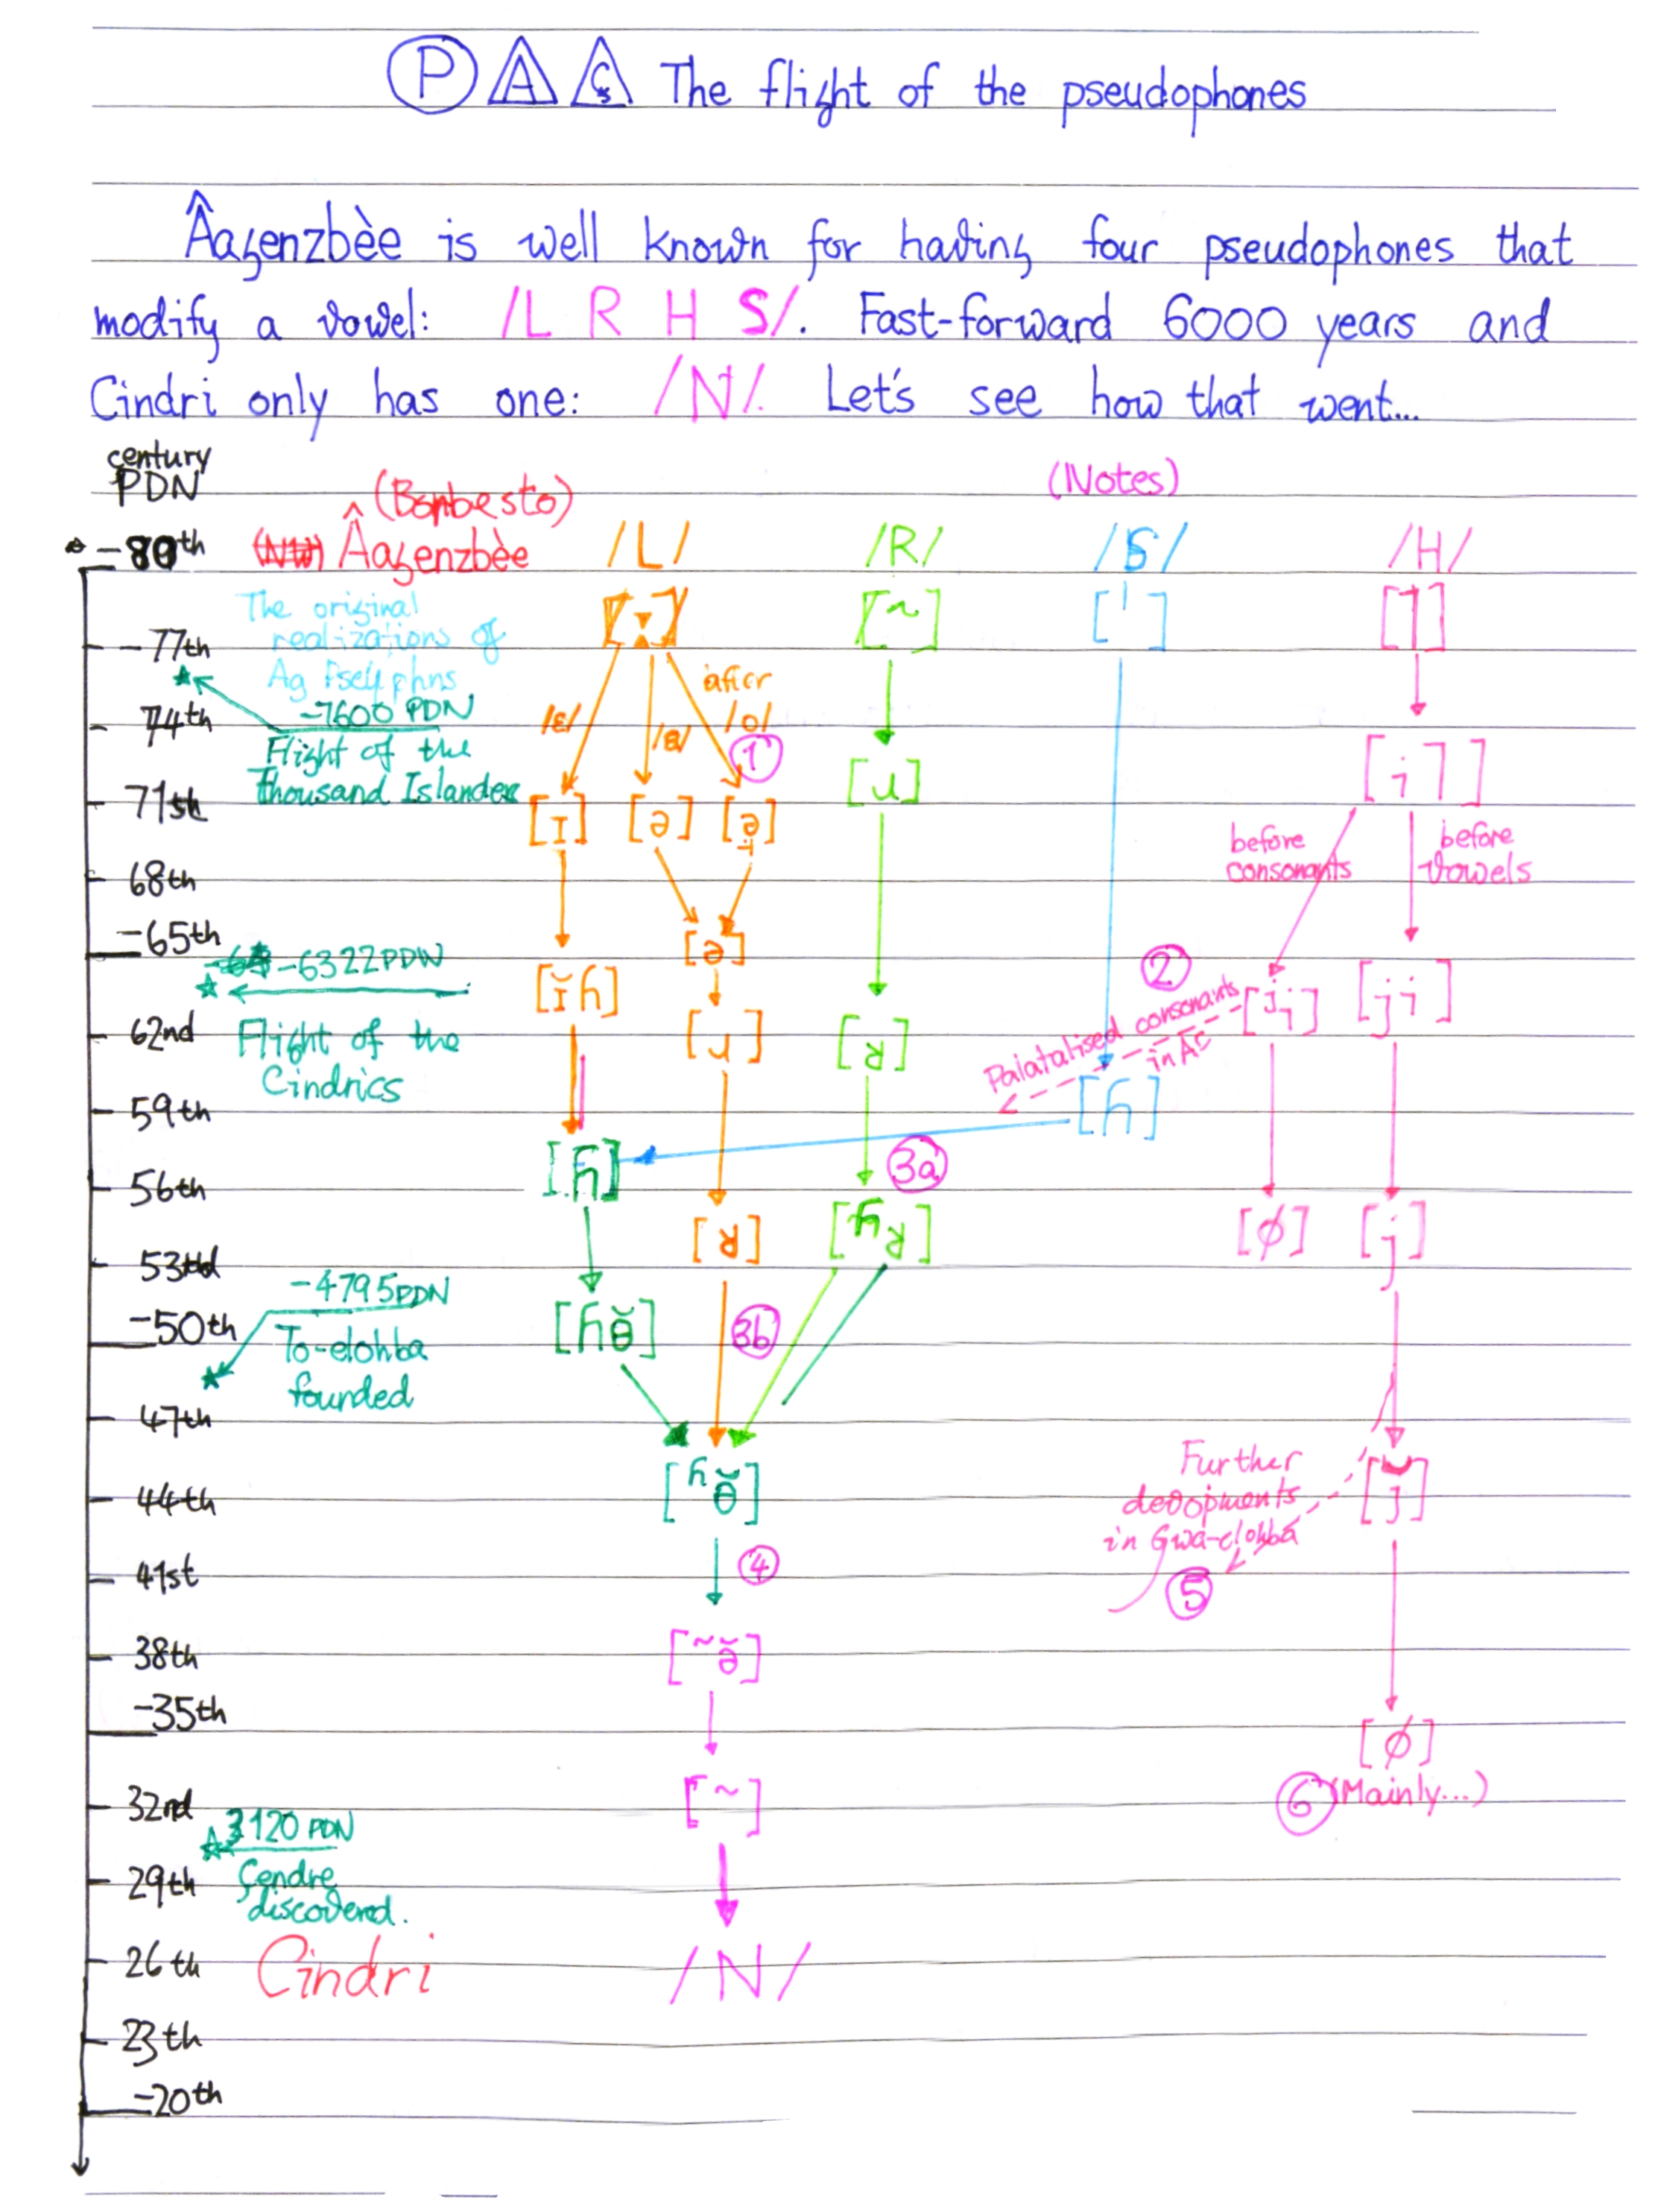 P A Ç The flight of the pseudophones
Âagenzbèe is well known for having four pseudophones that
modify a vowel: /L R H S/. Fast-forward 6000 years and
Cindri only has one: /N/. Let's see how that went...
century
PDN
(Notes)
(Bonbesto)
-80th Âagenzbèe /L/ /R/ /S/ /H/
The original
realizations of
Ag
[ː] [~] ['] [˥]
-77th
-7600 PDN
74th
Flight of the
Thousand Islander
/ɛ/ /ɐ/ after /o/ 1
71st
[ɪ] [ə] [ə̟] [ɯ] [i˥]
before consonants
before vowels
68th
-65th
-6322 PDN
[ə]
2
[ɪ̆ɦ] [ʲi] [ji]
62nd
Flight of the
Cindrics
Palatalised consonants
in Ac
[ɦ]
59th
3a
56th
[ɦ] [ʁ] [ɦʁ] [ø] [j]
53rd
-4795 PDN
-50th
To-elohba
founded
[ɦɵ̆] 3b
47th
Further
devopments
in Gwa-elohba
[ʱɵ̆] [j̆]
44th
41st
4
5
38th
[~ə̆]
-35th
[ø]
(Mainly...)
6
32nd
[~]
3120 PDN
29th
Cendre
discovered.
26th Cindri /N/
23th
-20th